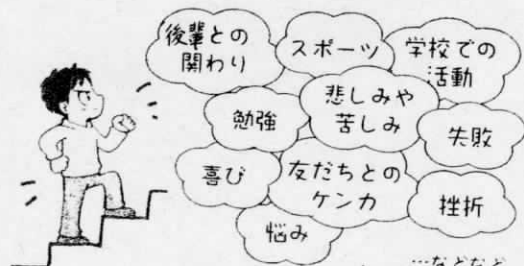 後輩との
関わり
スポーツ
学校での
活動
勉強
悲しみや
苦しみ
失敗
喜び
友だちとの
ケンカ
挫折
悩み
…などなど